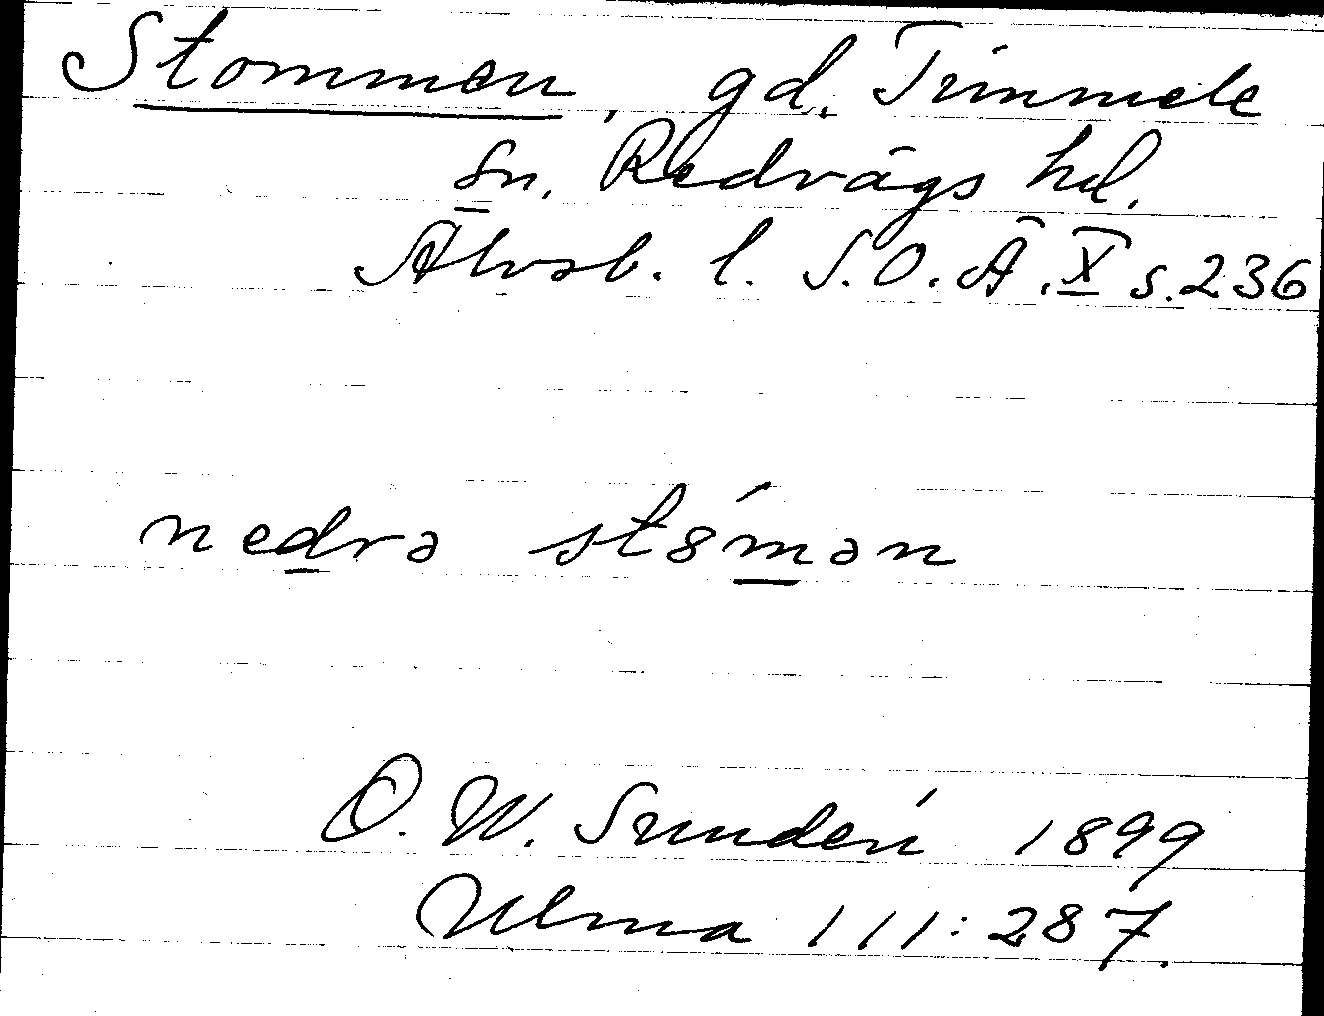 Stommen, gd. Timmele
sn. Redvägs hd.
Älvsb. l. S.O.Ä. X s. 236
nedrə st8́mən
O. W. Sundén 1899
Ulma 111:287.